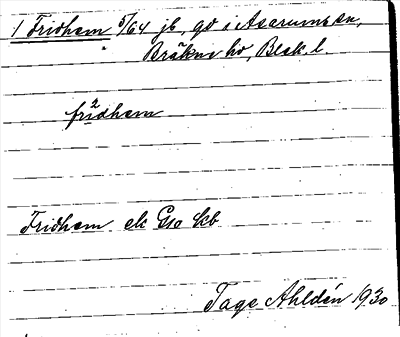 1 Fridhem 5/64 jb, gd i Asarums sn,
Bräkne hd, Blek. l.
fri2dhem
Fridhem ek Gso kb
Tage Ahldén 1930